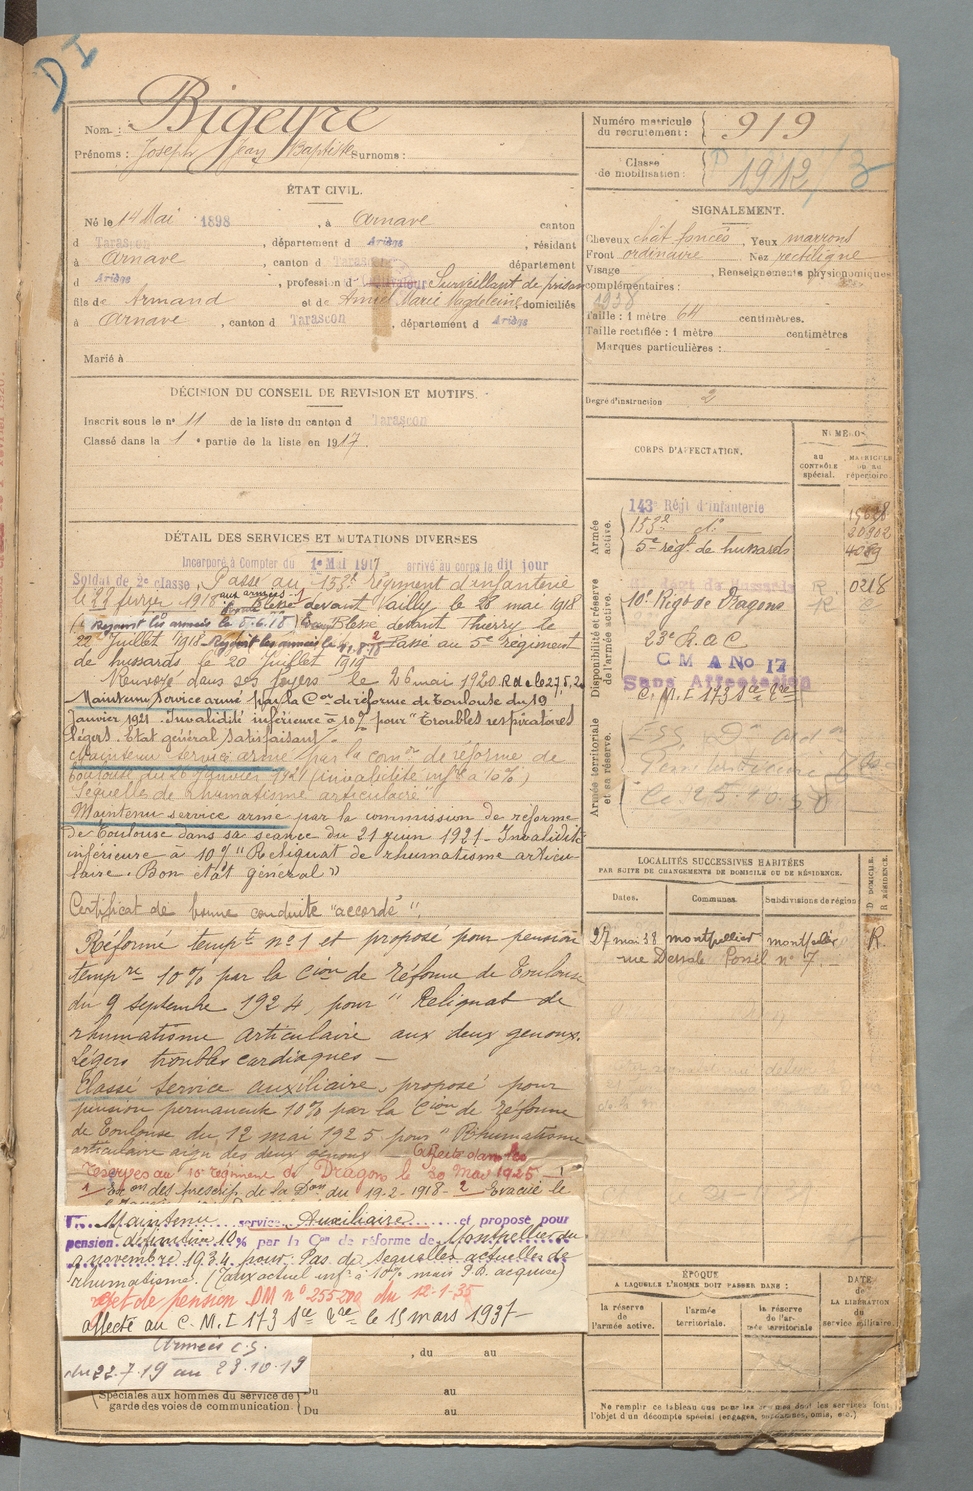 D I
Nom : Bigeyre
Prénoms : Joseph Jean Baptiste Surnoms :
ÉTAT CIVIL.
Né le 14 Mai 1898 , à Arnave canton
d Tarascon , département d Ariège , résidant
à Arnave , canton d Tarascon département
d Ariège , profession d Surveillant de prison
fils de Armand et de Marie Magdeleine domiciliés
à Arnave , canton d Tarascon , département d Ariège
Marié à
DÉCISION DU CONSEIL DE REVISION ET MOTIFS.
Inscrit sous le n° 11 de la liste du canton d Tarascon
Classé dans la 1 e partie de la liste en 1917.
DÉTAIL DES SERVICES ET MUTATIONS DIVERSES
Incorporé à Compter du 1e Mai 1917 arrivé au corps le dit jour
Soldat de 2e classe. Passé au 153e régiment d'infanterie
le 22 février 1918 aux armées Blessé devant Vailly le 28 mai 1918
Rejoint les armées le 5.6.18 Blessé devant Thierry le
22 Juillet 1918 Rejoint les armées le 11.8.18 2 Passé au 5e régiment
de hussards le 20 Juillet 1919
Renvoyé dans ses foyers le 26 mai 1920. R d c le 27.5.20
Maintenu service armé par la Con de réforme de Toulouse du 19
Janvier 1921. Invalidité inférieure à 10% pour "Troubles respiratoires
légers. Etat général satisfaisant"
Maintenu service armé par la com on de réforme de
Toulouse du 20 Janvier 1921 (invalidité infre à 10%)
"Sequelles de rhumatisme articulaire"
Maintenu service armé par la commission de réforme
de Toulouse dans sa séance du 21 juin 1921 - Invalidité
inférieure à 10% "Reliquat de rhumatisme articu-
laire. Bon état général"
Certificat de bonne conduite "accordé".
Réforme tempre n° 1 et proposé pour pension
tempre 10% par la Cion de réforme de Toulouse
du 9 septembre 1924, pour " Reliquat de
rhumatisme articulaire aux deux genoux.
Légers troubles cardiaques -
Classé Service auxiliaire, proposé pour
pension permanente 10% par la Cion de réforme
de Toulouse du 12 mai 1925 pour "Rhumatisme
articulaire aigu des deux genoux - Affecté dans les
réserves au 10e régiment de Dragons le 20 Mai 1925 - 1
1 En on des prescrip. de la Don du 19-2-1918 - 2 Evacué le
Maintenu service Auxiliaire et proposé pour
pension définitive 10% par la Con de réforme de Montpellier du
novembre 1934 pour: Pas de sequelles actuelles de
rhumatisme. (Taux actuel inf. à 10% mais P.D. acquise)
rejet de pension DM n° 255-200 du 12-1-35
affecté au C.M.I 173 le 15 mars 1937
Armées C.S.
du 22.7.19 au 23.10.19
, du au
Spéciales aux hommes du service de
garde des voies de communication.
Du au
Du au
Numéro matricule
du recrutement : 919
Classe
de mobilisation : 1912
SIGNALEMENT.
Cheveux chât foncés , Yeux marrons
Front ordinaire Nez rectiligne
Visage , Renseignements physionomiques
complémentaires :
1938
Taille : 1 mètre 64 centimètres.
Taille rectifiée : 1 mètre centimètres
Marques particulières :
Degré d'instruction 2
CORPS D'AFFECTATION.
NUMÉROS
au
CONTRÔLE
spécial.
MATRICULE
ou au
répertoire.
Armée
active.
143e Régt d'infanterie
153e d° 20802
5e régt de hussards 4089
Disponibilité et réserve
de l'armée active.
R. 0218
10e Régt de Dragons
23e R.a C
C M A No 17
Sans Affectation
C. M. I 173
Armée territoriale
et sa réserve.
Le 25.10.
LOCALITÉS SUCCESSIVES HABITÉES
PAR SUITE DE CHANGEMENTS DE DOMICILE OU DE RÉSIDENCE.
Dates. Communes. Subdivisions de région
D DOMICILE.
R RÉSIDENCE.
27 mai 38 montpellier montpellier R.
rue n° 7. -
ÉPOQUE
A LAQUELLE L'HOMME DOIT PASSER DANS :
la réserve
de
l'armée active.
l'armée
territoriale.
la réserve
de l'ar-
mée territoriale
DATE
de
LA LIBÉRATION
du
service militaire.
Ne remplir ce tableau que pour les hommes dont les services font
l'objet d'un décompte spécial (engagés, omis, etc.)